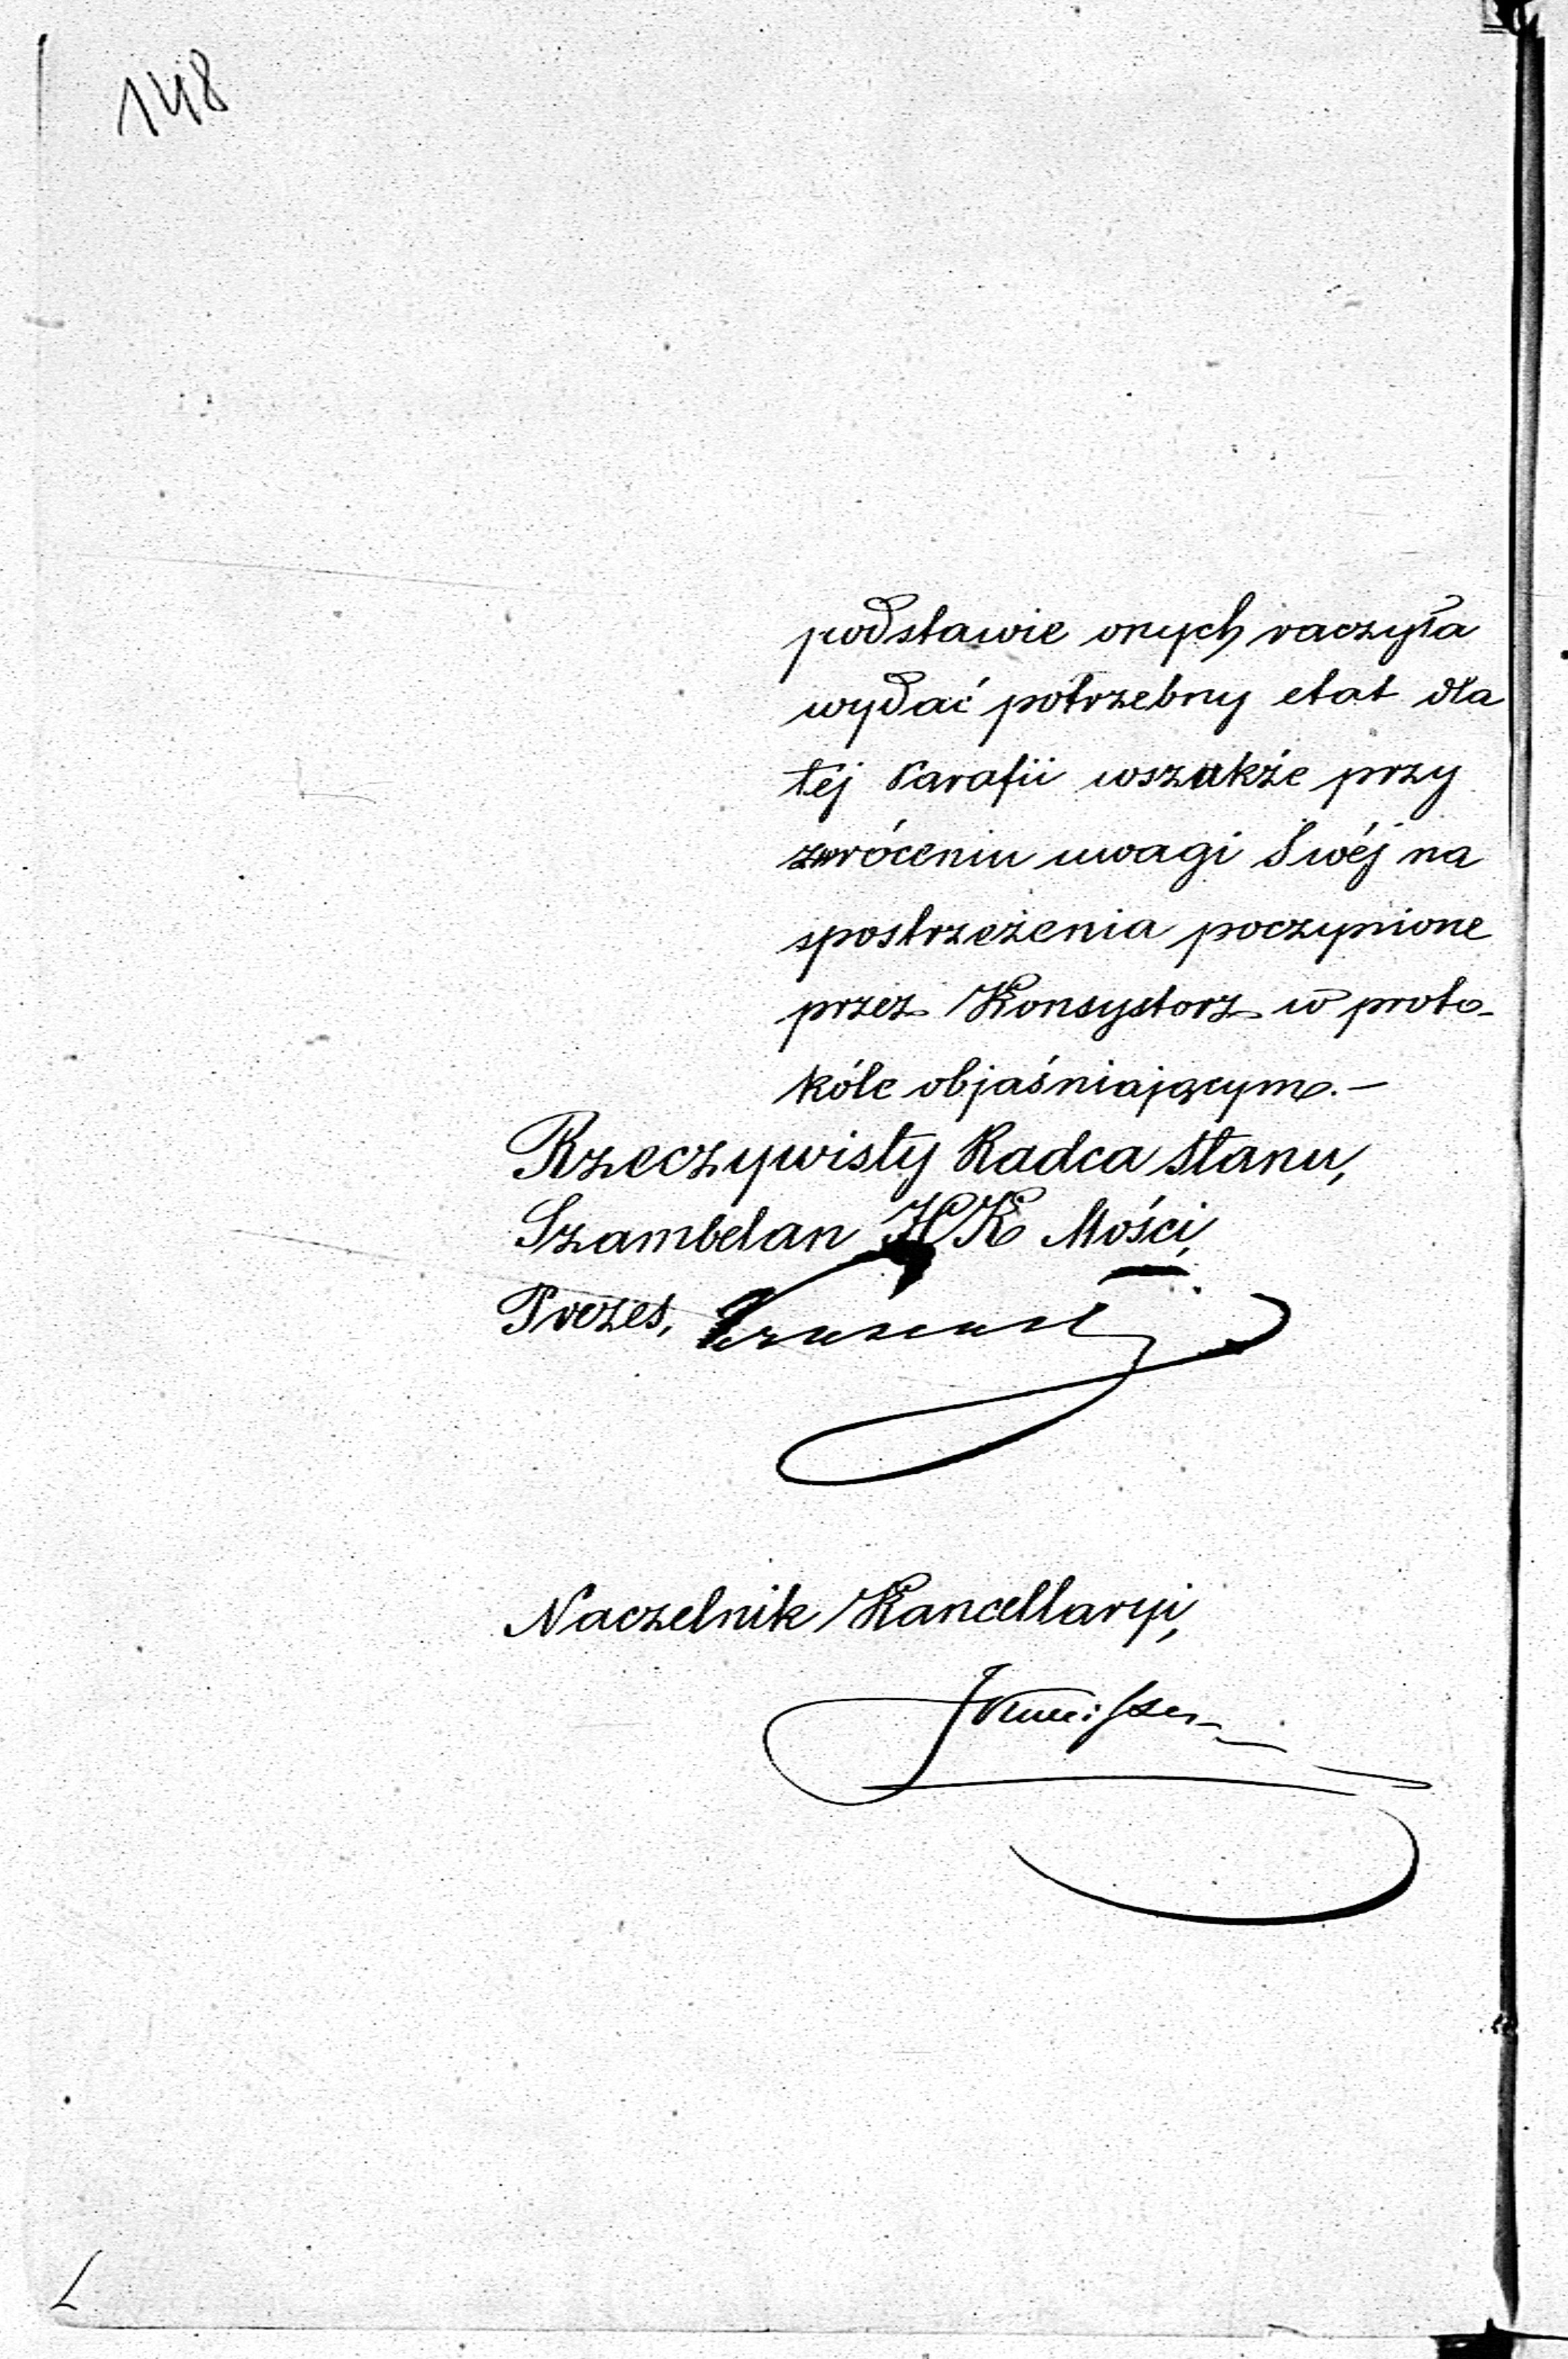 148
podstawie onych raczyła
wydać potrzebny etat dla
téj Parafii wszakże przy
zwróceniu uwagi Swéj na
spostrzeżenia poczynione
przez Konsystorz w proto-
kóle objaśniającym.—
Rzeczywisty Radca Stanu,
Szambelan JCK Mości,
Prezes,
Naczelnik Kancellaryi,